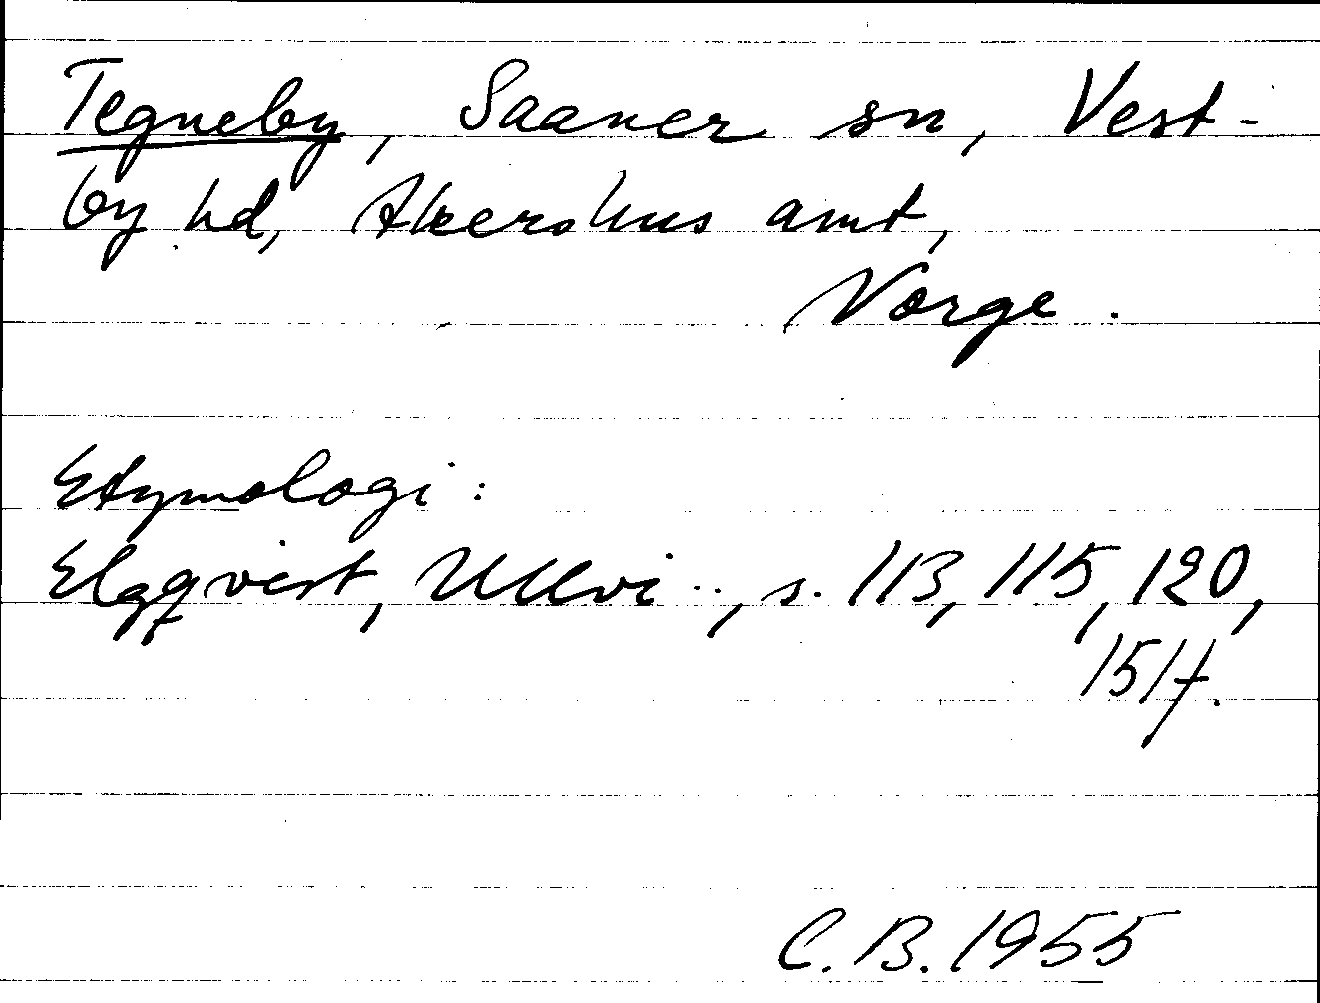 Tegneby, Saaner sn, Vest-
by hd, Akershus amt,
Norge.
Etymologi:
Elgqvist, Ullvi.., s. 113, 115, 120,
151f.
C.B. 1955